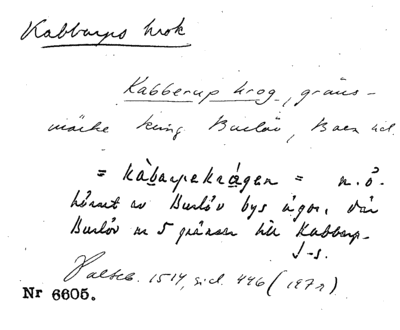 Kabbarps krok
Kabberup krog, gräns-
märke kring Burlöv, Bara hd.
= kàbarpakrågen = n.ö.
hörnet av Burlöv bys ägor, där
Burlöv nr 5 gränsar till Kabbarp.
J-s.
1514, sid. 446 (197r)
Nr 6605.